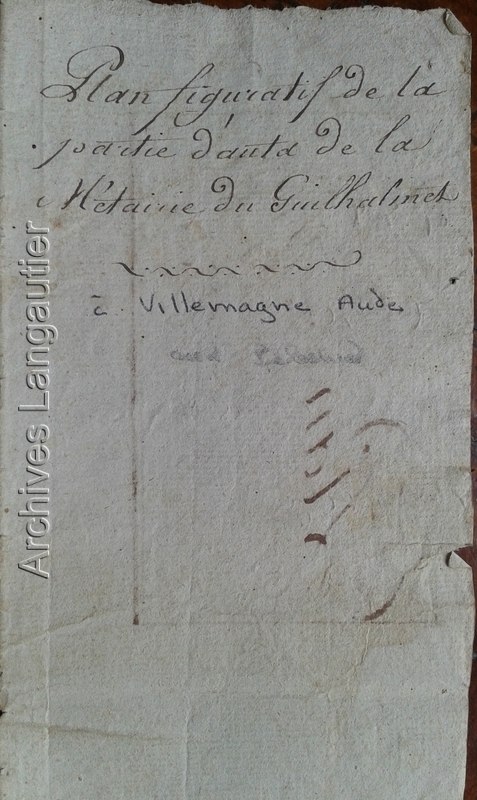 Plan figuratif de la
partie d'auta de la
Métairie du Guilhalmet
à Villemagne Aude
Archives Langautier